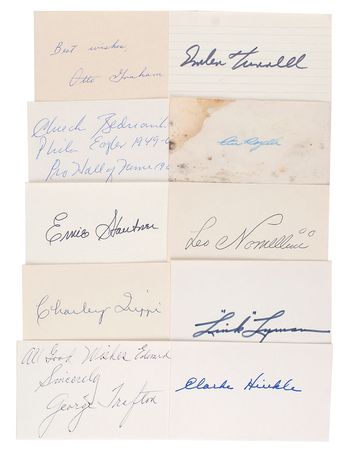 Best wishes
Otto Graham
Emlen Tunnell
Chuck Bednarik
Phila Eagles 1949-6
Pro Hall of Fame 19
Ernie Stautner
Leo Nomellini
Charley Trippi
"Link" Lyman
All Good Wishes Edward
Sincerely
George Trafton
Clarke Hinkle